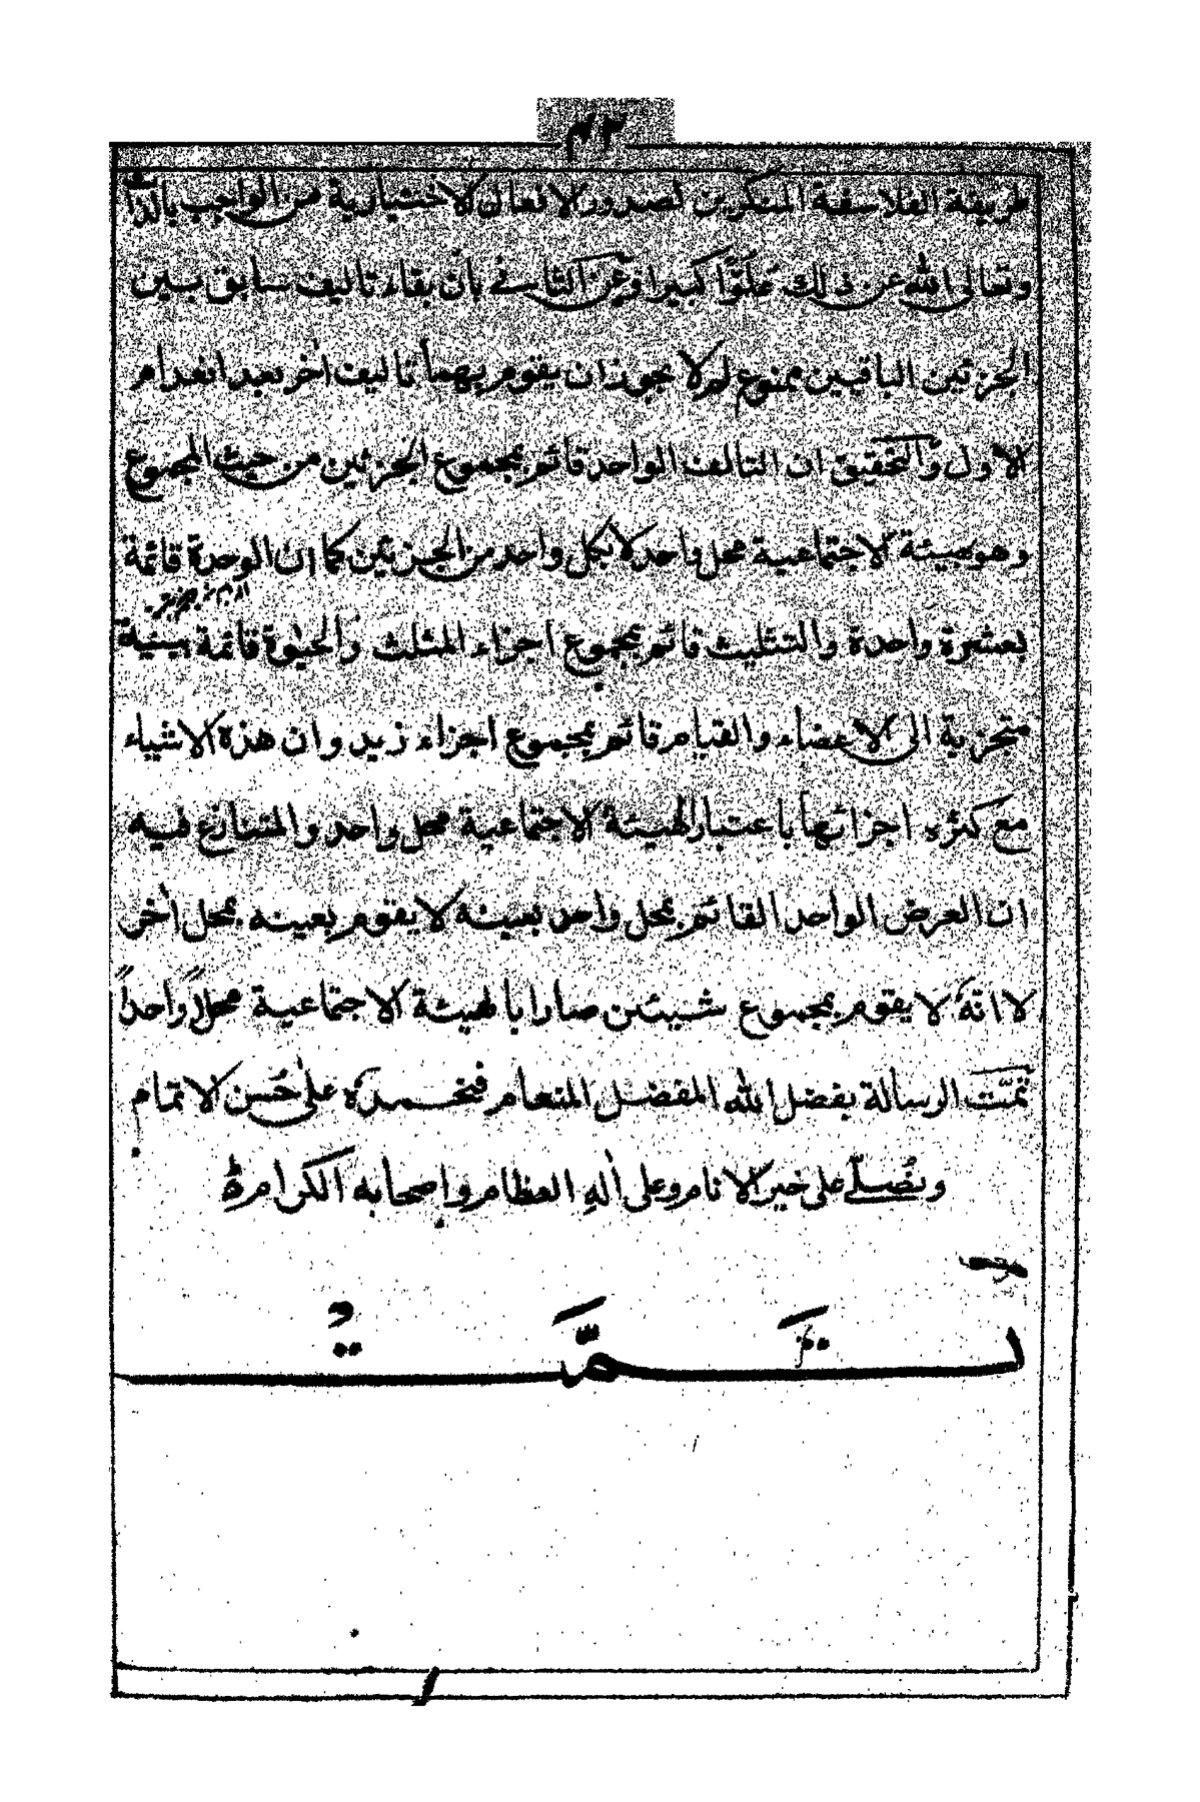 ٤٢
طريقة الفلاسفة المنكرين لصدور الافعال الاختيارية من الواجب بالذات
وتعالى الله عن ذلك عُلُوًّا كبيرا وعن الثاني بأن بقاء تاليف سابق بين
الجزئين الباقيين ممنوع لم لا يجوز ان يقوم بهما تاليف اٰخر بعد انعدام
الاول والتحقيق ان التالف الواحد قائم بمجموع الجزئين من حيث المجموع
وهو بهيئة الاجتماعية محل واحد لا بكل واحد من الجزئين كما ان الوحدة قائمة
بعشرة واحدة والتثليث قائم بمجموع اجزاء المثلث والحيٰوة قائمة ببنية
متجزية الى الاعضاء والقيام قائم بمجموع اجزاء زيد وان هذه الاشياء
مع كثرة اجزائها باعتبار الهيئة الاجتماعية محل واحد والمتنازع فيه
ان العرض الواحد القائم بمحل واحد بعينه لا يقوم بعينه بمحل اٰخر
لا انهٗ لا يقوم بمجموع شيئين صارا بالهيئة الاجتماعية محلًا واحدًا
تمّت الرسالة بفضل الله المفضل المنعام فنحمدهٗ على حُسن الاتمام
ونُصلّي على خير الانام وعلى اٰلهٖ العظام واصحابه الكرام
تَمَّتْ